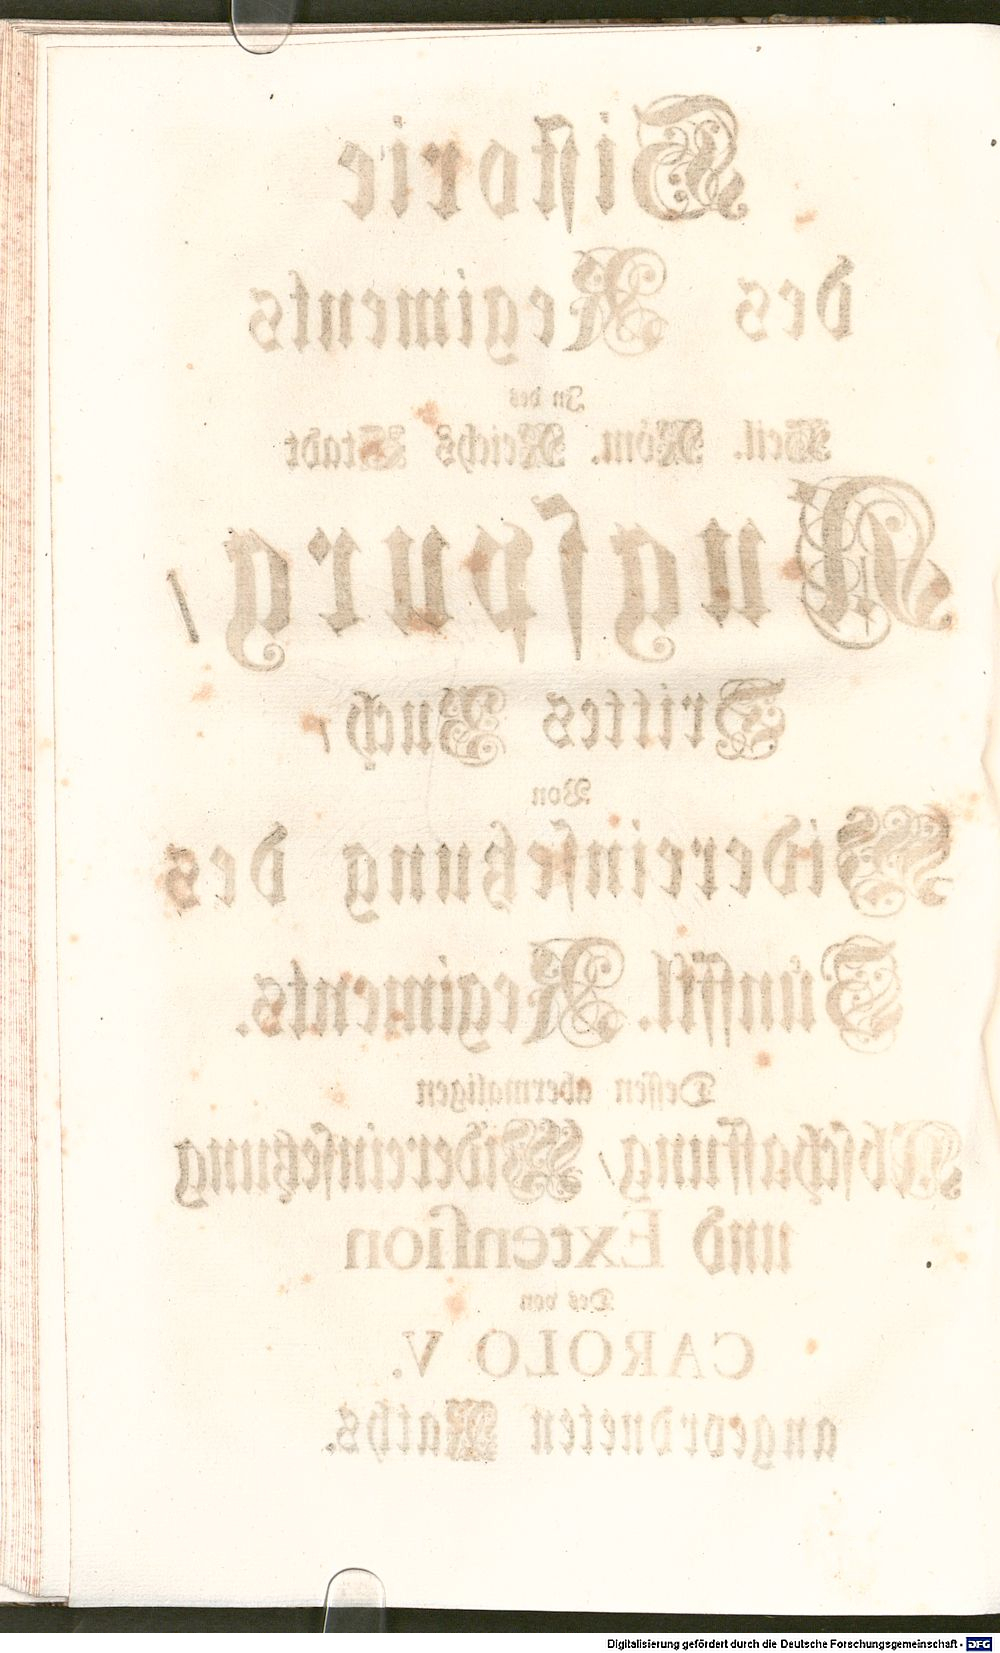 Historie
des Regiments
In des
Heil. Röm. Reichs Stadt
Augspurg,
Drittes Buch,
Von
Widereinsetzung des
Zünfftl. Regiments.
Dessen abermaligen
Abschaffung, Widereinsetzung
und Extension
Des von
CAROLO V.
angeordneten Raths.
Digitalisierung gefördert durch die Deutsche Forschungsgemeinschaft - DFG